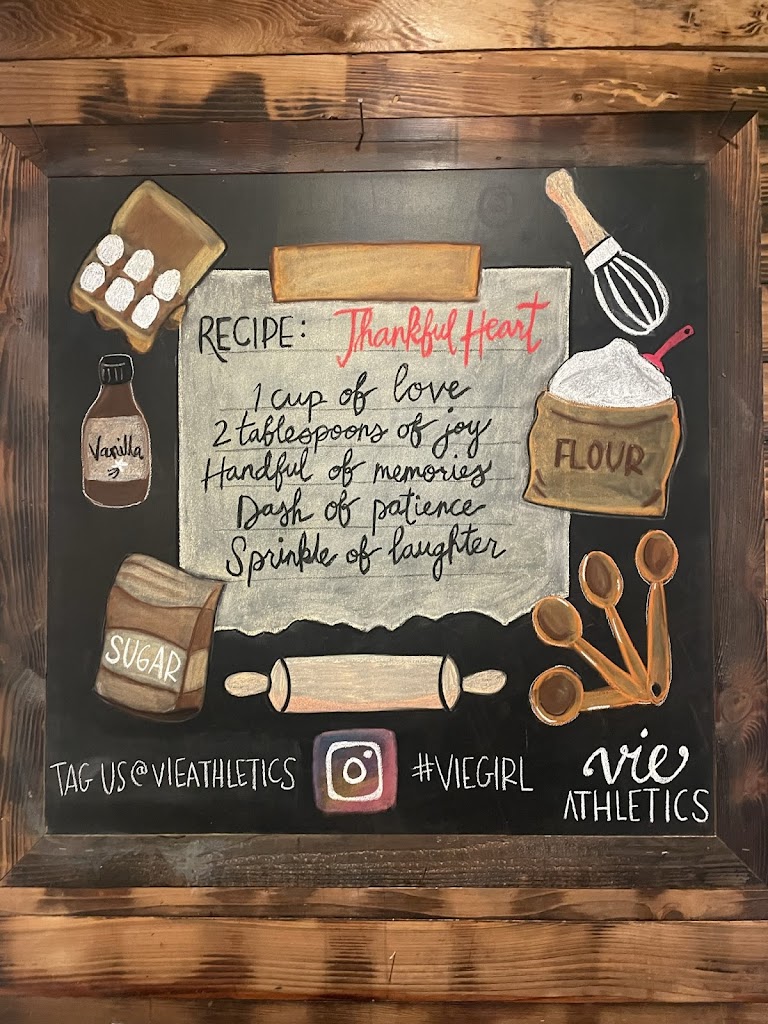 RECIPE: Thankful Heart
1 cup of love
2 tablespoons of joy
Handful of memories
Dash of patience
Sprinkle of laughter
Vanilla
FLOUR
SUGAR
TAG US @VIEATHLETICS
#VIEGIRL
vie
ATHLETICS